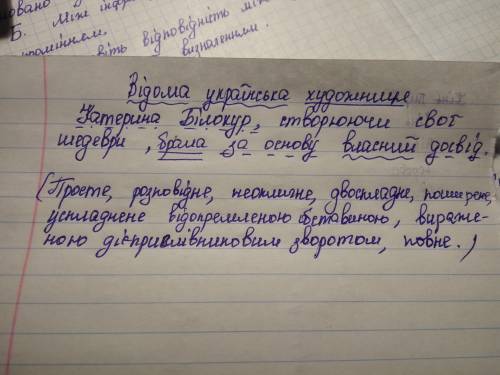 Б. Між
відповідність між
промінням.
визначенням.
Відома українська художниця
Катерина Білокур, створюючи свої
шедеври, брала за основу власний досвід.
(Просте, розповідне, неокличне, двоскладне, поширене,
ускладнене відокремленою обставиною, вираже-
ною дієприслівниковим зворотом, повне.)